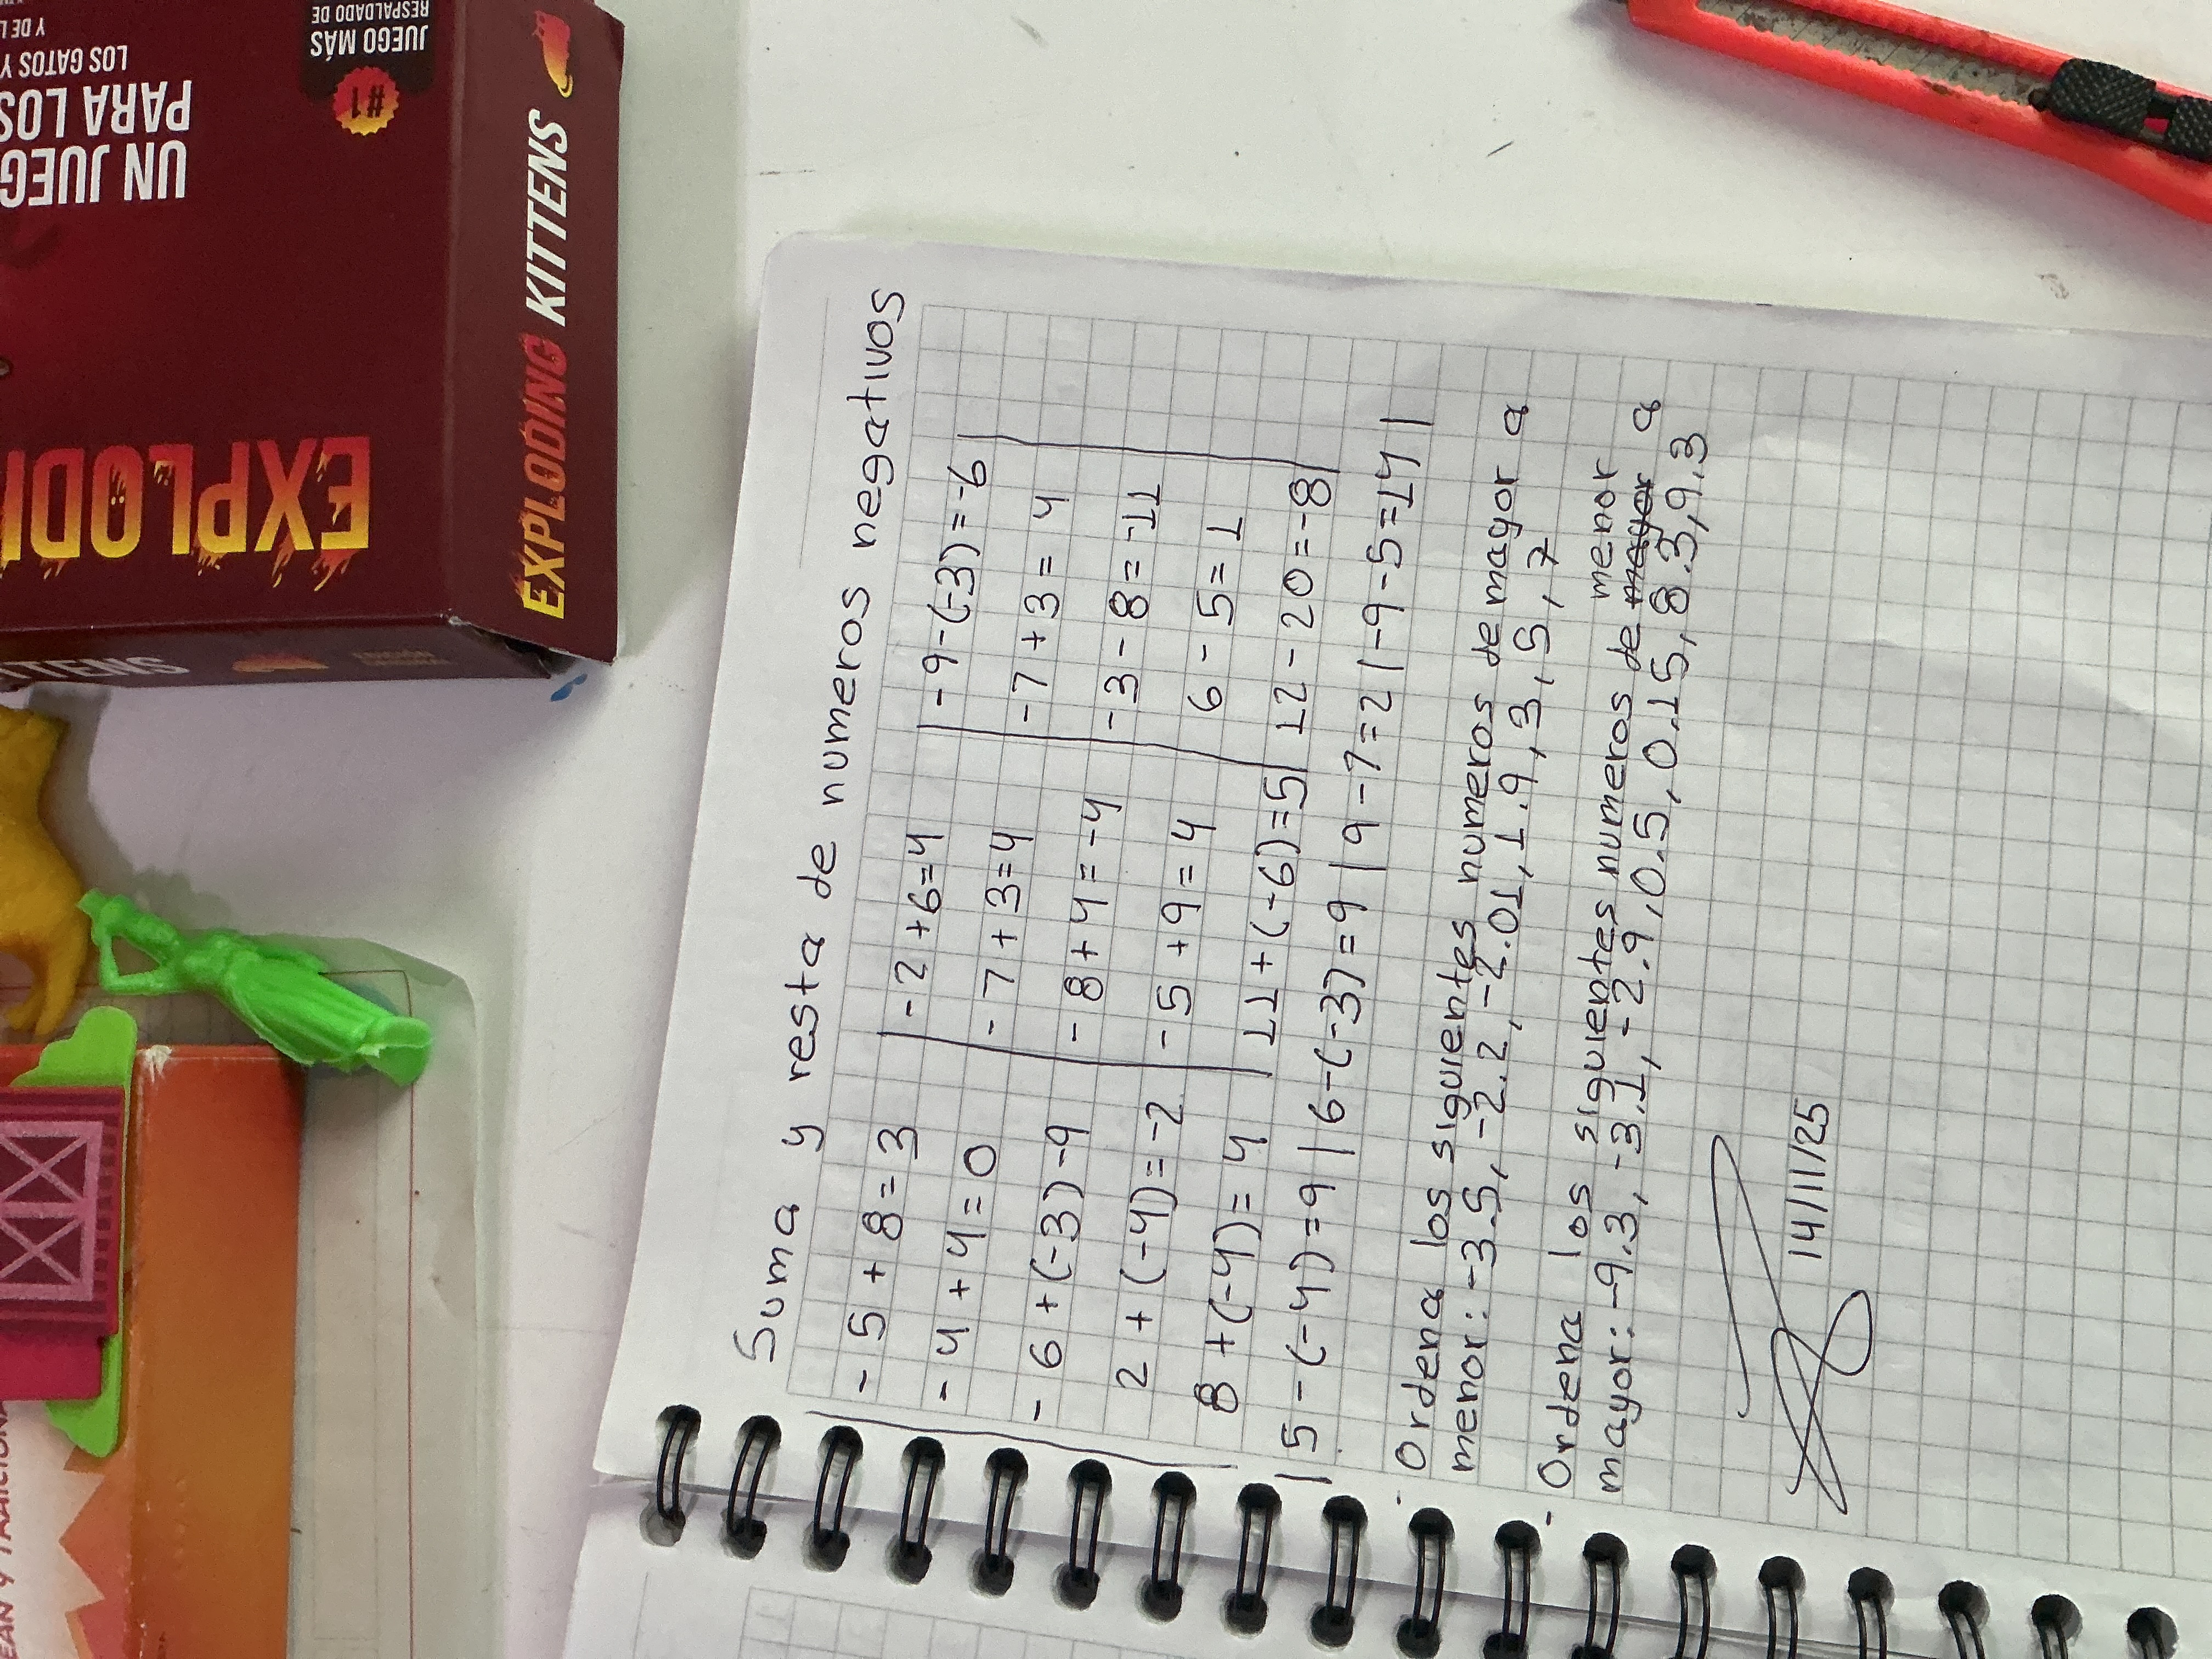 Suma y resta de numeros negativos
- 5 + 8 = 3 | - 2 + 6 = 4 | - 9 - (-3) = -6 |
- 4 + 4 = 0 - 7 + 3 = 4 - 7 + 3 = 4
- 6 + (-3) -9 - 8 + 4 = -4 - 3 - 8 = -11
2 + (-4) = -2 - 5 + 9 = 4 6 - 5 = 1
8 + (-4) = 4 | 11 + (-6) = 5 | 12 - 20 = -8 |
| 5 - (-4) = 9 | 6 - (-3) = 9 | 9 - 7 = 2 | -9 - 5 = 14 |
- Ordena los siguientes numeros de mayor a
menor: -3.5, -2.2, -2.01, 1.9, 3, 5, 7
menor
- Ordena los siguientes numeros de mayor a
mayor: -9.3, -3.1, -2.9, 0.5, 0.15, 8.3, 9.3
14/11/25
EXPLODING KITTENS
#1
JUEGO MÁS
RESPALDADO DE
UN JUEG
PARA LOS
LOS GATOS Y
Y DE L
EXPLODI
TTENS
EAN Y TRAICIONA